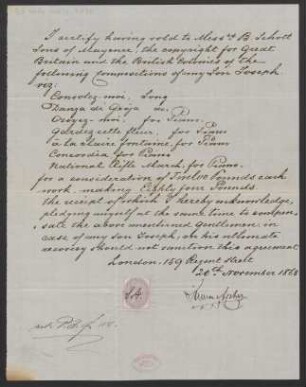 I certify having sold to Messrs B. Schott
Sons of Mayence, the copyright for Great
Britain and the British Colonies of the
following compositions of my Son Joseph.
viz:
Consolez-moi, Song
Danza di Gioja do:
Croyez-moi, for Piano.
Gardez cette fleur, for Piano
à la claire fontaine, for Piano
Concordia for Piano
National Rifle March, for Piano.
for a consideration of Twelve Pounds each
work, making Eighty four Pounds
the receipt of which I hereby acknowledge,
pledging myself at the same time to compen,
sate the above mentioned Gentlemen, in
case of my son Joseph, on his ultimate
recovery should not sanction this agreement
London. 159 Regent Street
20th November 186